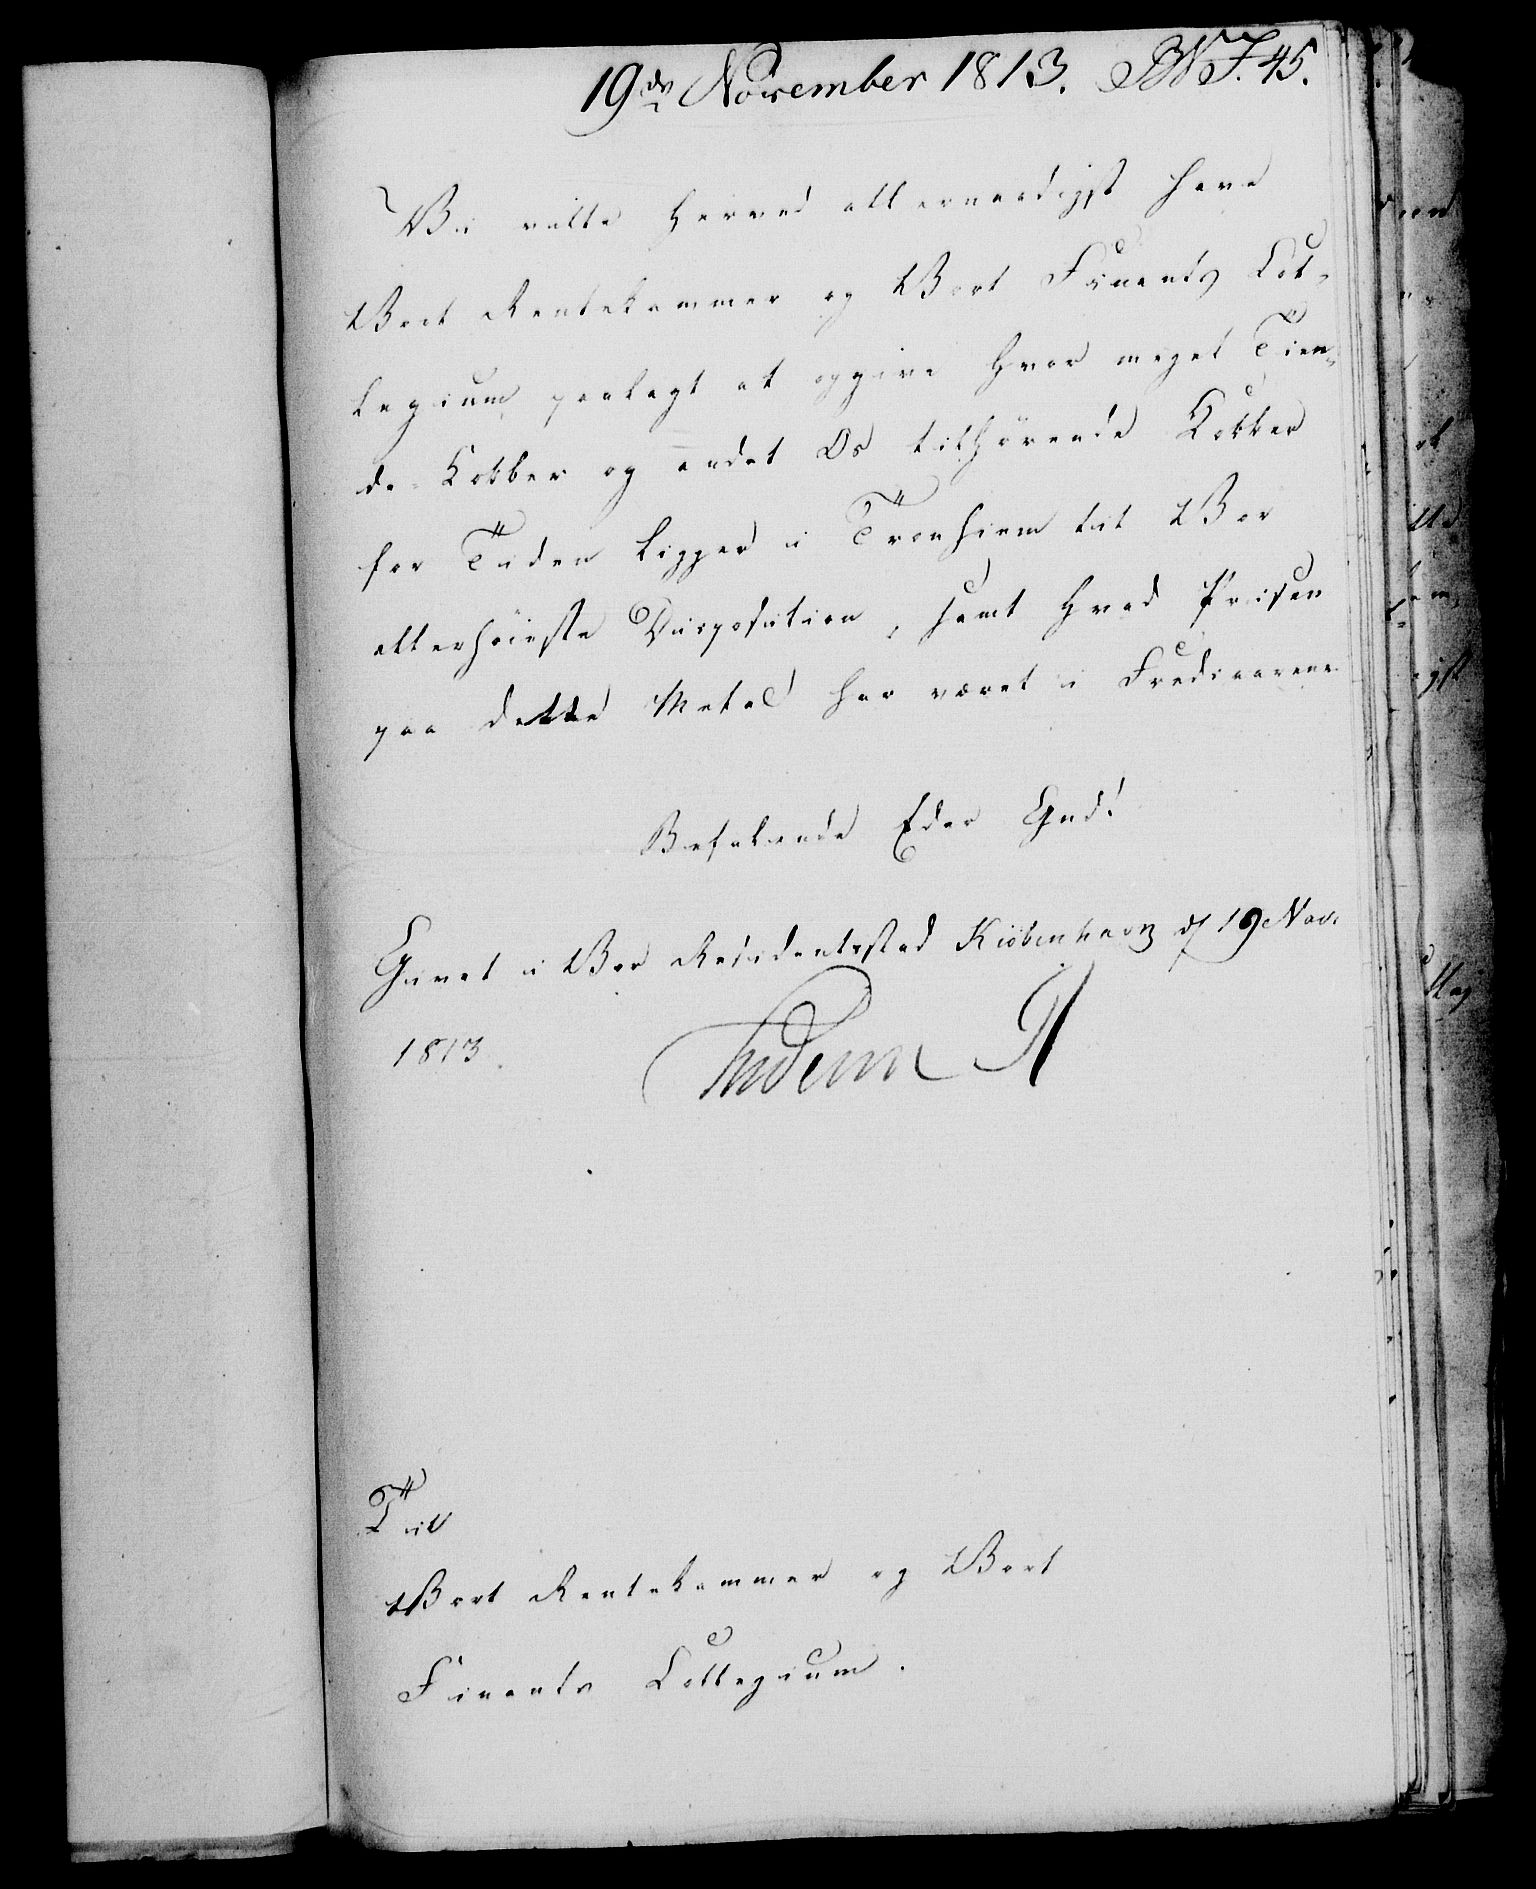 19de November 1813. No. 45.
Vi ville herved allernaadigst have
Vort Rentekammer og Vort Finants Col-
legium paalagt at opgive hvor meget Tien-
de-Kobber og andet Os tilhörende Kobber
for Tiden ligger i Tronhiem til Vor
allerhöieste Disposition, samt hvad Prisen
paa dette Metal har været i Frediaarene
Befalende Eder Gud!
Givet i Vor Residentsstad Kiöbenhavn d 19 Nov:
1813.
Frederik R
Til
Vort Rentekammer og Vort
Finants Collegium.